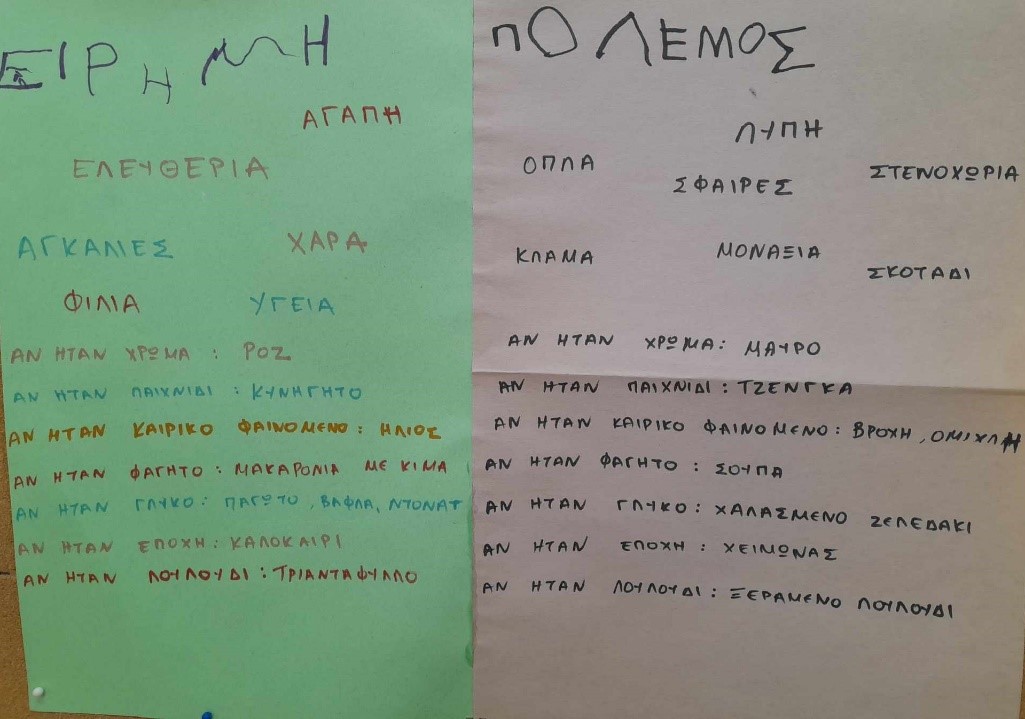 ΕΙΡΗΝΗ
ΑΓΑΠΗ
ΕΛΕΥΘΕΡΙΑ
ΑΓΚΑΛΙΕΣ
ΧΑΡΑ
ΦΙΛΙΑ
ΥΓΕΙΑ
ΑΝ ΗΤΑΝ ΧΡΩΜΑ : ΡΟΖ
ΑΝ ΗΤΑΝ ΠΑΙΧΝΙΔΙ : ΚΥΝΗΓΗΤΟ
ΑΝ ΗΤΑΝ ΚΑΙΡΙΚΟ ΦΑΙΝΟΜΕΝΟ : ΗΛΙΟΣ
ΑΝ ΗΤΑΝ ΦΑΓΗΤΟ : ΜΑΚΑΡΟΝΙΑ ΜΕ ΚΙΜΑ
ΑΝ ΗΤΑΝ ΓΛΥΚΟ : ΠΑΓΩΤΟ , ΒΑΦΛΑ, ΝΤΟΝΑΤ
ΑΝ ΗΤΑΝ ΕΠΟΧΗ : ΚΑΛΟΚΑΙΡΙ
ΑΝ ΗΤΑΝ ΛΟΥΛΟΥΔΙ : ΤΡΙΑΝΤΑΦΥΛΛΟ
ΠΟΛΕΜΟΣ
ΛΥΠΗ
ΟΠΛΑ
ΣΦΑΙΡΕΣ
ΣΤΕΝΟΧΩΡΙΑ
ΚΛΑΜΑ
ΜΟΝΑΞΙΑ
ΣΚΟΤΑΔΙ
ΑΝ ΗΤΑΝ ΧΡΩΜΑ : ΜΑΥΡΟ
ΑΝ ΗΤΑΝ ΠΑΙΧΝΙΔΙ : ΤΖΕΝΓΚΑ
ΑΝ ΗΤΑΝ ΚΑΙΡΙΚΟ ΦΑΙΝΟΜΕΝΟ : ΒΡΟΧΗ , ΟΜΙΧΛΗ
ΑΝ ΗΤΑΝ ΦΑΓΗΤΟ : ΣΟΥΠΑ
ΑΝ ΗΤΑΝ ΓΛΥΚΟ : ΧΑΛΑΣΜΕΝΟ ΖΕΛΕΔΑΚΙ
ΑΝ ΗΤΑΝ ΕΠΟΧΗ : ΧΕΙΜΩΝΑΣ
ΑΝ ΗΤΑΝ ΛΟΥΛΟΥΔΙ : ΞΕΡΑΜΕΝΟ ΛΟΥΛΟΥΔΙ